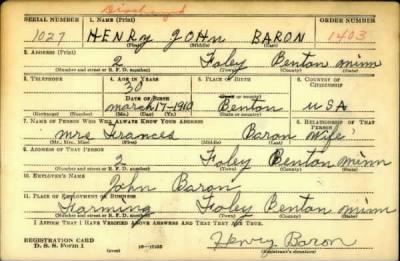 Discharged
SERIAL NUMBER 1. NAME (Print) ORDER NUMBER
1027 HENRY JOHN BARON 1403
(First) (Middle) (Last)
2. ADDRESS (Print)
2 Foley Benton Minn
(Number and street or R. F. D. number) (Town) (County) (State)
3. TELEPHONE 4. AGE IN YEARS 5. PLACE OF BIRTH 6. COUNTRY OF CITIZENSHIP
30
DATE OF BIRTH (Town or county)
March 17-1910 Benton USA
(Exchange) (Number) (Mo.) (Day) (Yr.) (State or country)
7. NAME OF PERSON WHO WILL ALWAYS KNOW YOUR ADDRESS 8. RELATIONSHIP OF THAT PERSON
Mrs Frances Baron Wife
(Mr., Mrs., Miss) (First) (Middle) (Last)
9. ADDRESS OF THAT PERSON
2 Foley Benton Minn
(Number and street or R. F. D. number) (Town) (County) (State)
10. EMPLOYER'S NAME
John Baron
11. PLACE OF EMPLOYMENT OR BUSINESS
Farming Foley Benton Minn
(Number and street or R. F. D. number) (Town) (County) (State)
I AFFIRM THAT I HAVE VERIFIED ABOVE ANSWERS AND THAT THEY ARE TRUE.
REGISTRATION CARD
D. S. S. Form 1 Henry Baron
(Registrant's signature)